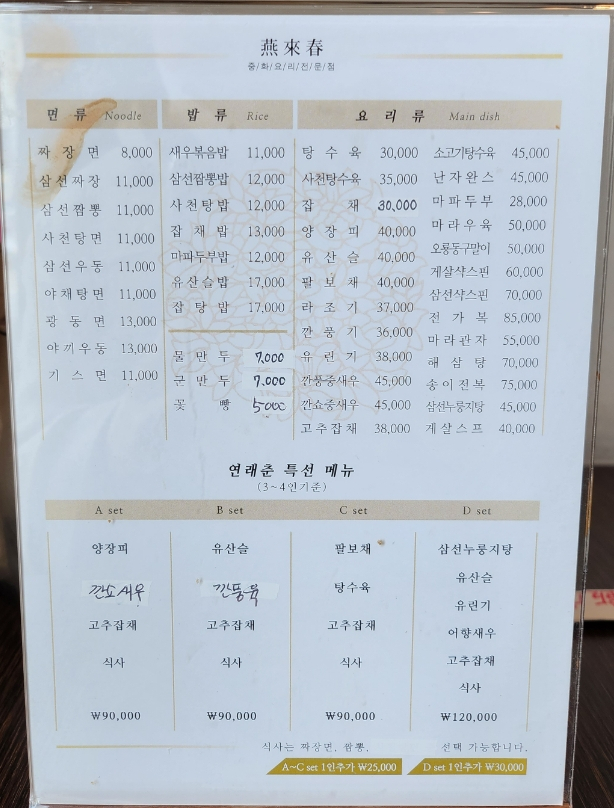 燕來春
중/화/요/리/전/문/점
면 류 Noodle
짜장면 8,000
삼선짜장 11,000
삼선짬뽕 11,000
사천탕면 11,000
삼선우동 11,000
야채탕면 11,000
광동면 13,000
야끼우동 13,000
기스면 11,000
밥 류 Rice
새우볶음밥 11,000
삼선짬뽕밥 12,000
사천탕밥 12,000
잡채밥 13,000
마파두부밥 12,000
유산슬밥 17,000
잡탕밥 17,000
물만두 7,000
군만두 7,000
꽃빵 5000
요 리 류 Main dish
탕수육 30,000
사천탕수육 35,000
잡채 30,000
양장피 40,000
유산슬 40,000
팔보채 40,000
라조기 37,000
깐풍기 36,000
유린기 38,000
깐풍중새우 45,000
깐쇼중새우 45,000
고추잡채 38,000
소고기탕수육 45,000
난자완스 45,000
마파두부 28,000
마라우육 50,000
오룡동구말이 50,000
게살샥스핀 60,000
삼선샥스핀 70,000
전가복 85,000
마라관자 55,000
해삼탕 70,000
송이전복 75,000
삼선누룽지탕 45,000
게살스프 40,000
연래춘 특선 메뉴
(3~4인기준)
A set
양장피
깐쇼새우
고추잡채
식사
₩90,000
B set
유산슬
깐풍육
고추잡채
식사
₩90,000
C set
팔보채
탕수육
고추잡채
식사
₩90,000
D set
삼선누룽지탕
유산슬
유린기
어향새우
고추잡채
식사
₩120,000
식사는 짜장면, 짬뽕, 선택 가능합니다.
A~C set 1인추가 ₩25,000
D set 1인추가 ₩30,000